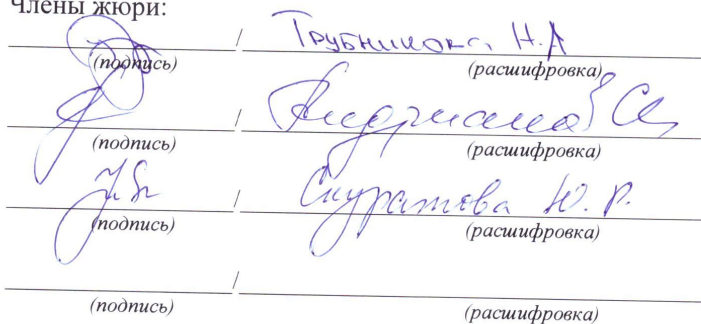 Члены жюри:
/ Трубникова Н.А
(подпись) (расшифровка)
/
(подпись) (расшифровка)
/ Скуратова Ю. Р.
(подпись) (расшифровка)
/
(подпись) (расшифровка)